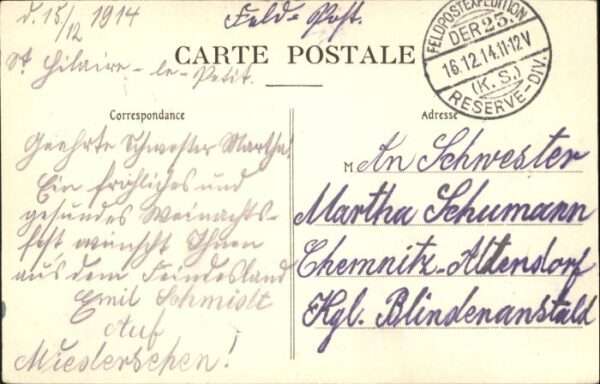 d. 15/12 1914 Feld-Post.
CARTE POSTALE
St. Hilaire-le-Petit.
FELDPOSTEXPEDITION
DER 23.
16.12.14.11-12V
(K. S.)
RESERVE-DIV.
Correspondance
Geehrte Schwester Martha!
Ein fröhliches und
gesundes Weinachts-
fest wünscht Ihnen
aus dem Feindesland
Emil Schmidt
Auf
Wiedersehen!
Adresse
M An Schwester
Martha Schumann
Chemnitz-Altendorf
Kgl. Blindenanstald